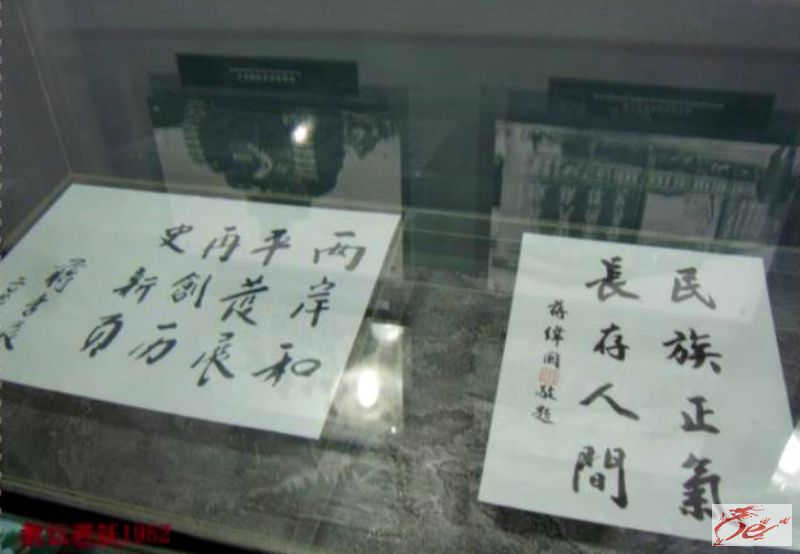 两岸和
平發展
再创历
史新页
蒋孝严
民族正氣
長存人間
蔣緯國敬題